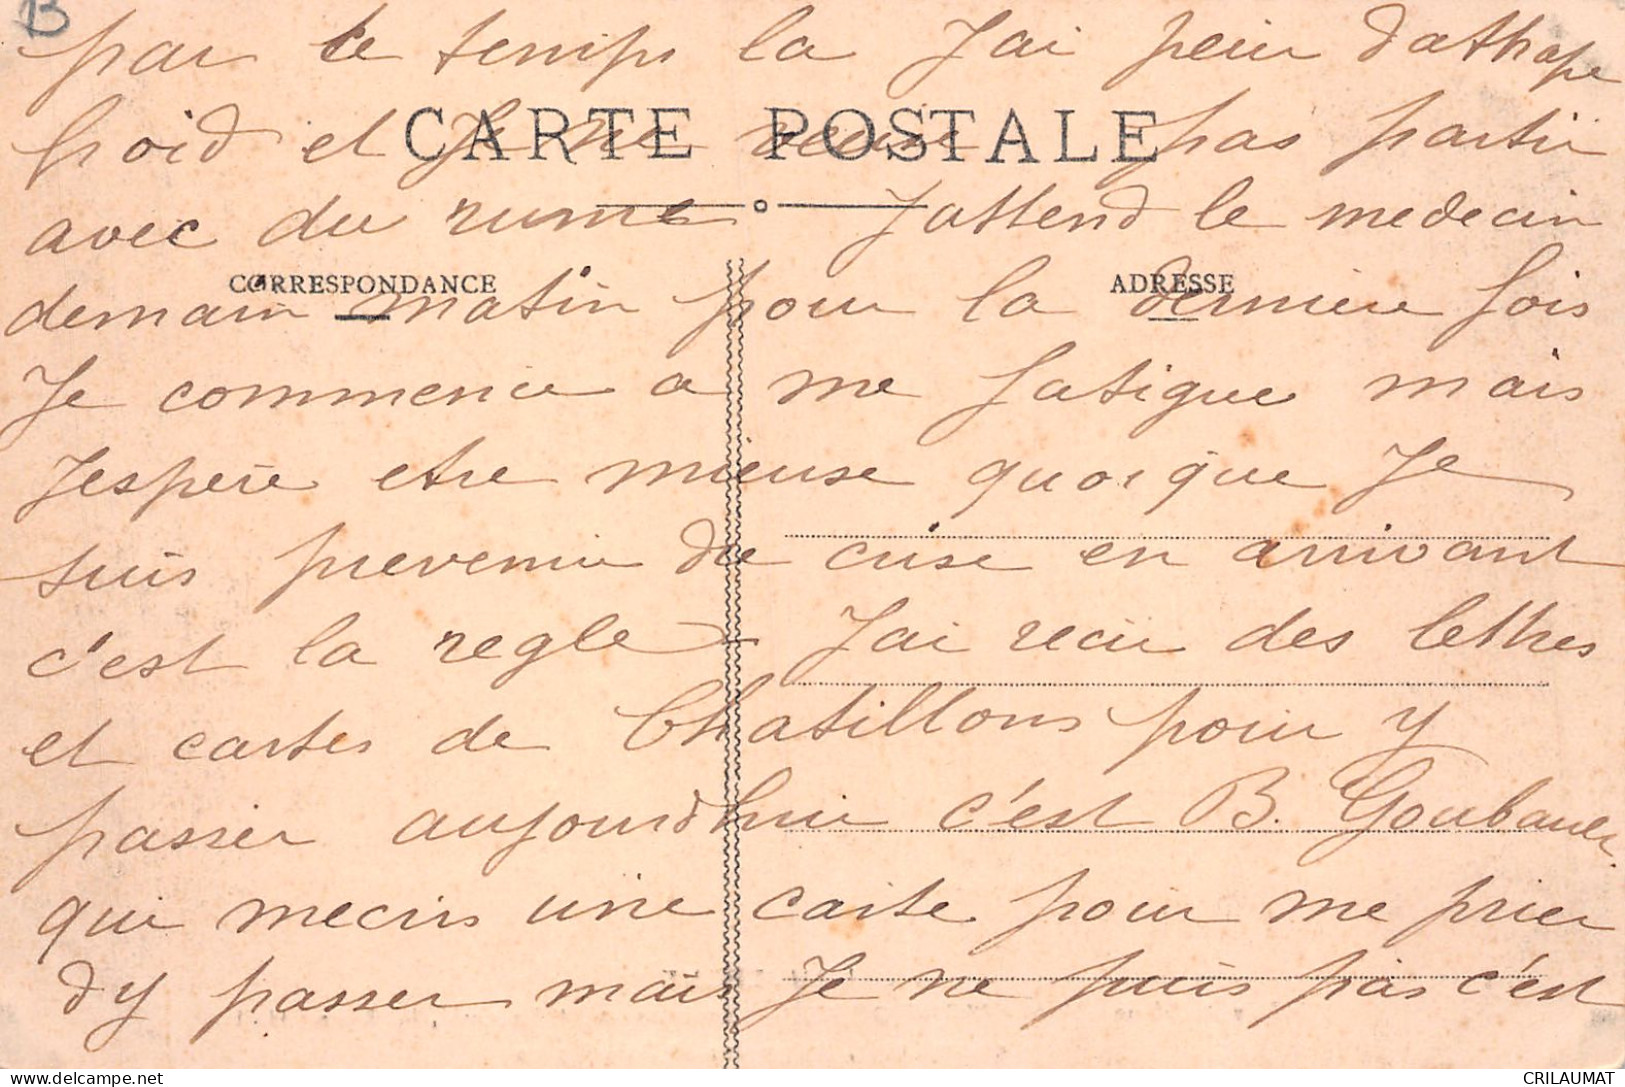 B
par ce temps la Jai peur dathape
CARTE POSTALE
froid et Je ne veux pas partir
avec du rume Jattend le medecin
CORRESPONDANCE ADRESSE
demain matin pour la derniere fois
Je commence a me fatigue mais
Jespere etre mieuse quoique Je
suis prevenue du crise en arrivant
c'est la regle Jai recu des lettres
et cartes de Chatillons pour y
passer aujourdhui c'est B. Goubauer
qui mecris une carte pour me prier
dy passer mais Je ne puis pas c'est
CRILAUMAT
delcampe.net